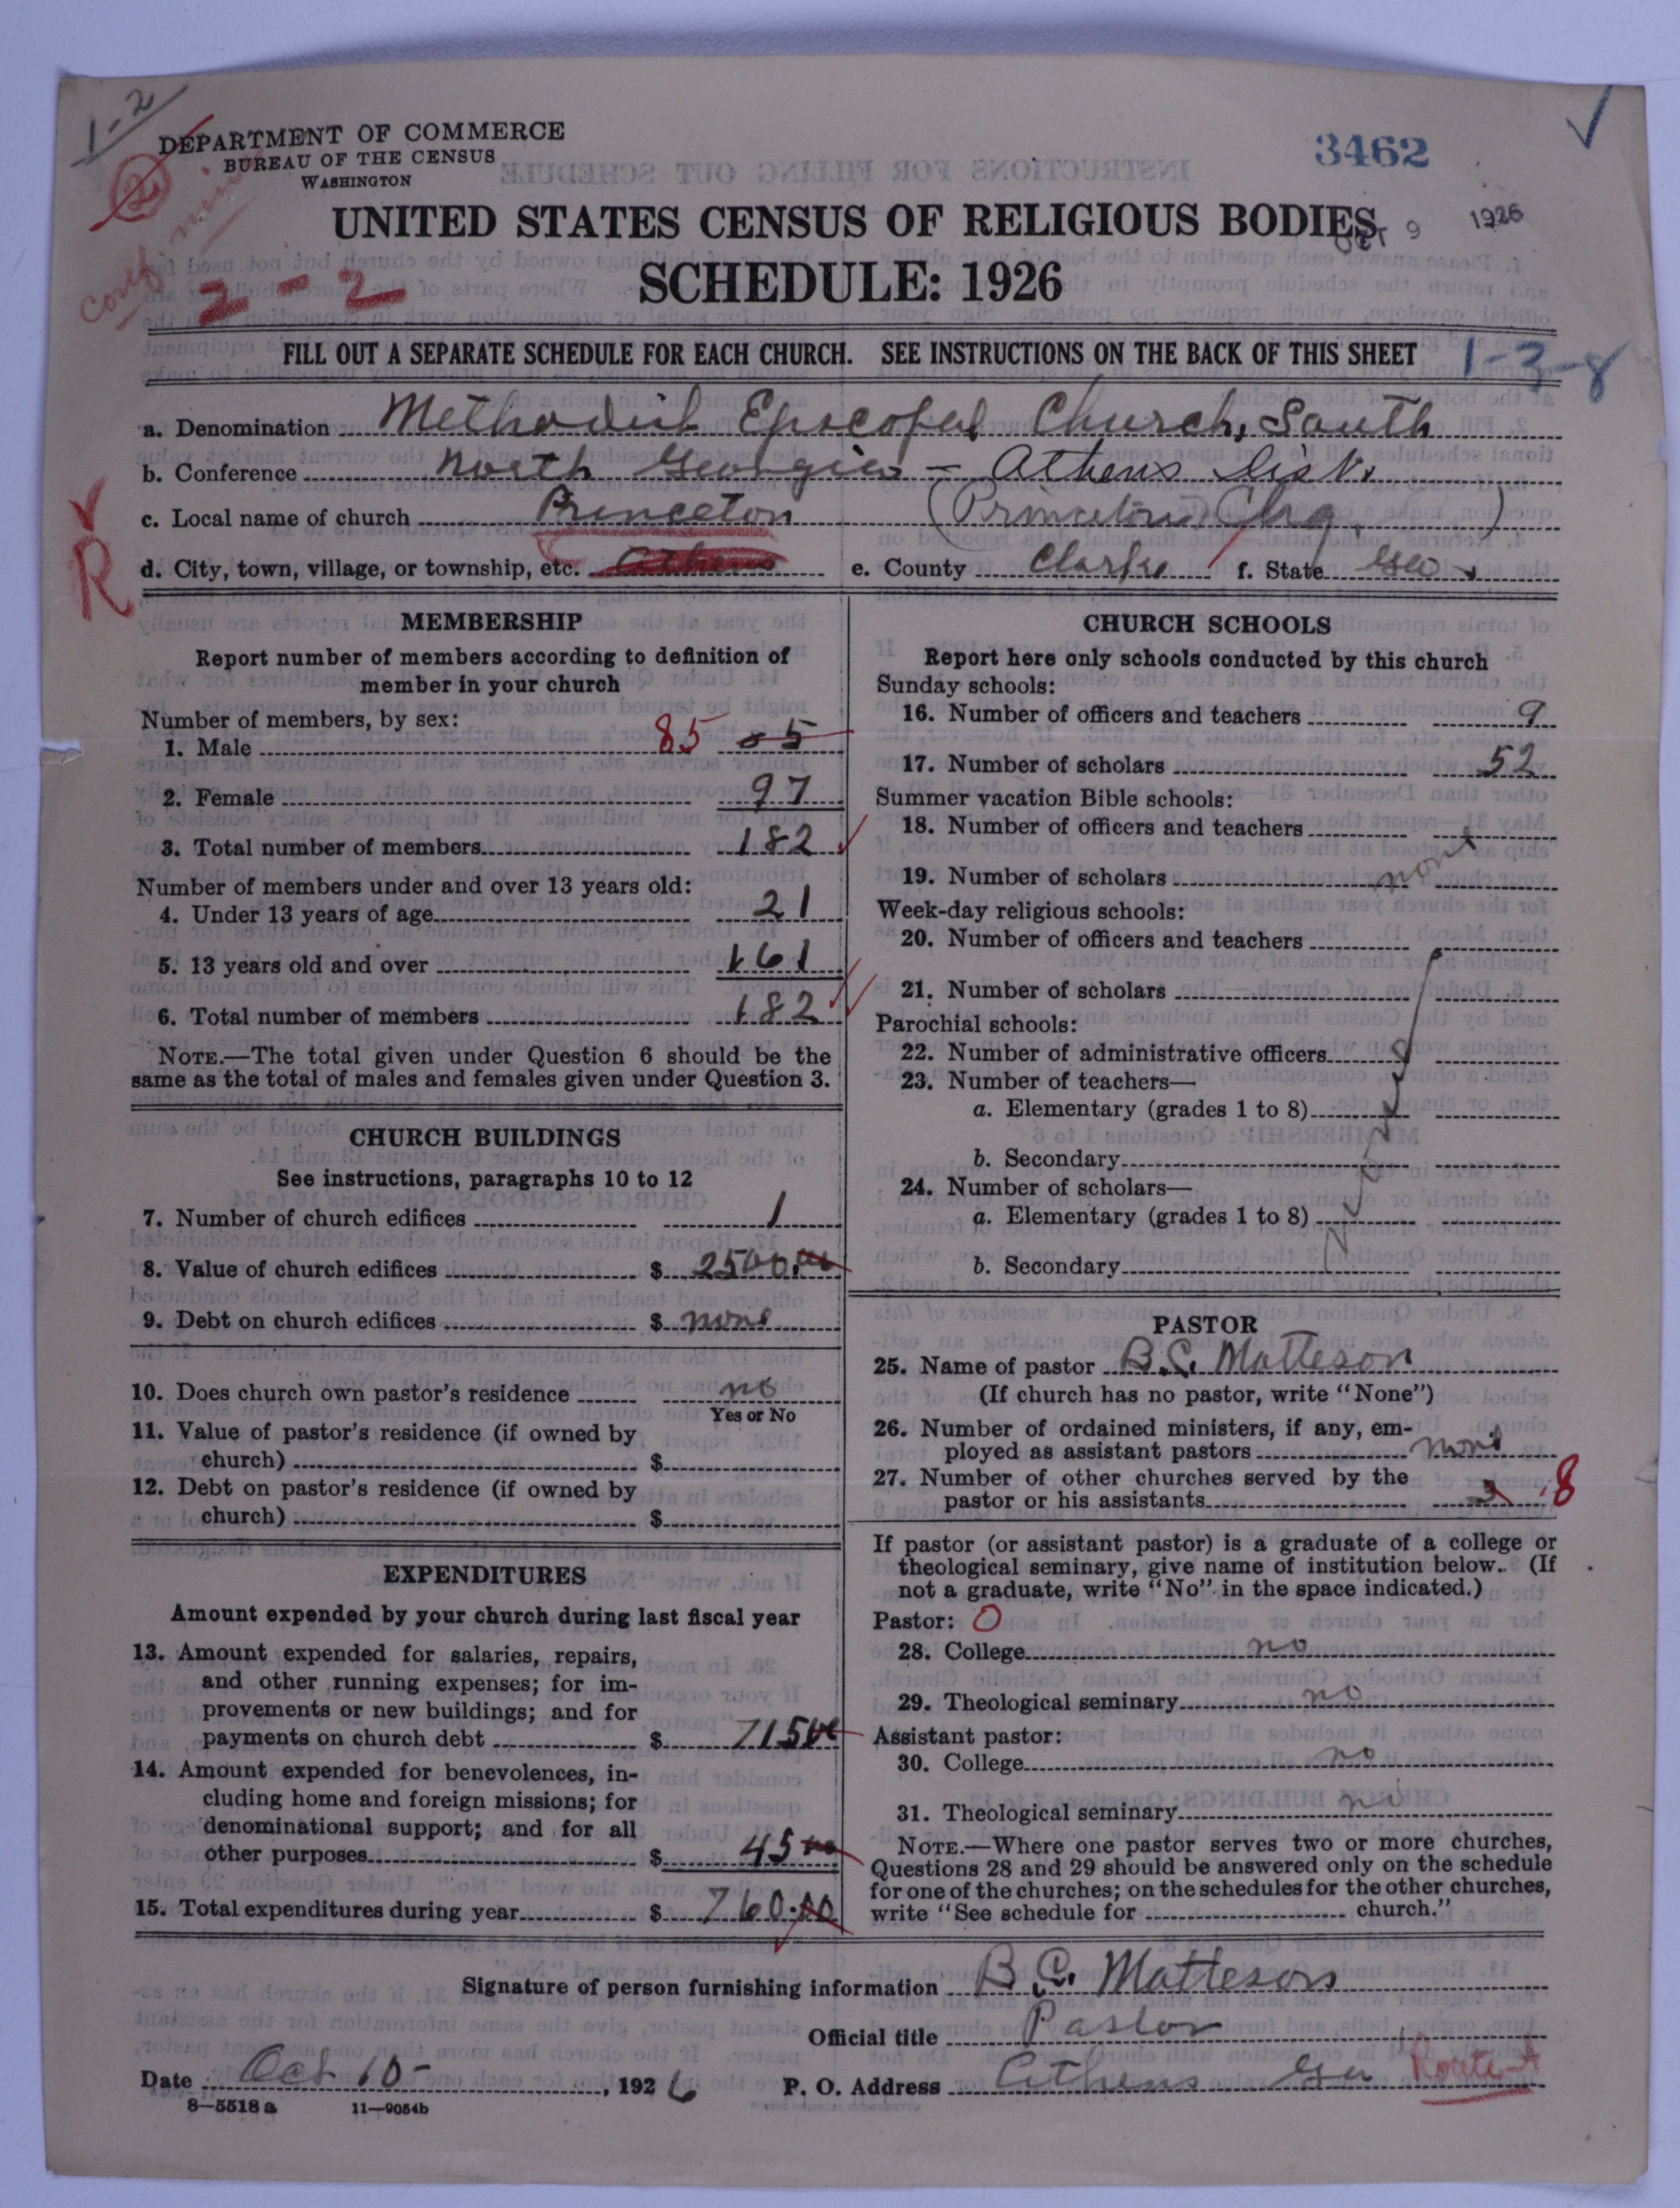 1-2
DEPARTMENT OF COMMERCE
BUREAU OF THE CENSUS
WASHINGTON
3462
UNITED STATES CENSUS OF RELIGIOUS BODIES
9 1926
SCHEDULE: 1926
2-2
FILL OUT A SEPARATE SCHEDULE FOR EACH CHURCH. SEE INSTRUCTIONS ON THE BACK OF THIS SHEET
1-3-8
a. Denomination Methodist Episcopal Church, South
b. Conference North Georgia - Athens Dist.
c. Local name of church Princeton (Princeton Chg.)
R
d. City, town, village, or township, etc. Athens e. County Clarke f. State Ga
MEMBERSHIP
Report number of members according to definition of
member in your church
Number of members, by sex:
1. Male 85 85
2. Female 97
3. Total number of members 182
Number of members under and over 13 years old:
4. Under 13 years of age 21
5. 13 years old and over 161
6. Total number of members 182
NOTE.—The total given under Question 6 should be the
same as the total of males and females given under Question 3.
CHURCH BUILDINGS
See instructions, paragraphs 10 to 12
7. Number of church edifices 1
8. Value of church edifices $ 2500.00
9. Debt on church edifices $ none
10. Does church own pastor's residence no
Yes or No
11. Value of pastor's residence (if owned by
church) $
12. Debt on pastor's residence (if owned by
church) $
EXPENDITURES
Amount expended by your church during last fiscal year
13. Amount expended for salaries, repairs,
and other running expenses; for im-
provements or new buildings; and for
payments on church debt $ 715 00
14. Amount expended for benevolences, in-
cluding home and foreign missions; for
denominational support; and for all
other purposes $ 45 00
15. Total expenditures during year $ 760.00
CHURCH SCHOOLS
Report here only schools conducted by this church
Sunday schools:
16. Number of officers and teachers 9
17. Number of scholars 52
Summer vacation Bible schools:
18. Number of officers and teachers
19. Number of scholars none
Week-day religious schools:
20. Number of officers and teachers
21. Number of scholars
Parochial schools:
22. Number of administrative officers
23. Number of teachers—
a. Elementary (grades 1 to 8)
b. Secondary
24. Number of scholars—
a. Elementary (grades 1 to 8)
b. Secondary
PASTOR
25. Name of pastor B.C. Matteson
(If church has no pastor, write "None")
26. Number of ordained ministers, if any, em-
ployed as assistant pastors none
27. Number of other churches served by the
pastor or his assistants 3 8
If pastor (or assistant pastor) is a graduate of a college or
theological seminary, give name of institution below. (If
not a graduate, write "No" in the space indicated.)
Pastor: 0
28. College no
29. Theological seminary no
Assistant pastor:
30. College no
31. Theological seminary no
NOTE.—Where one pastor serves two or more churches,
Questions 28 and 29 should be answered only on the schedule
for one of the churches; on the schedules for the other churches,
write "See schedule for church."
Signature of person furnishing information B.C. Matteson
Official title Pastor
Date Oct 10- , 1926 P. O. Address Athens Ga Route-A
8—5518 a 11—9054b